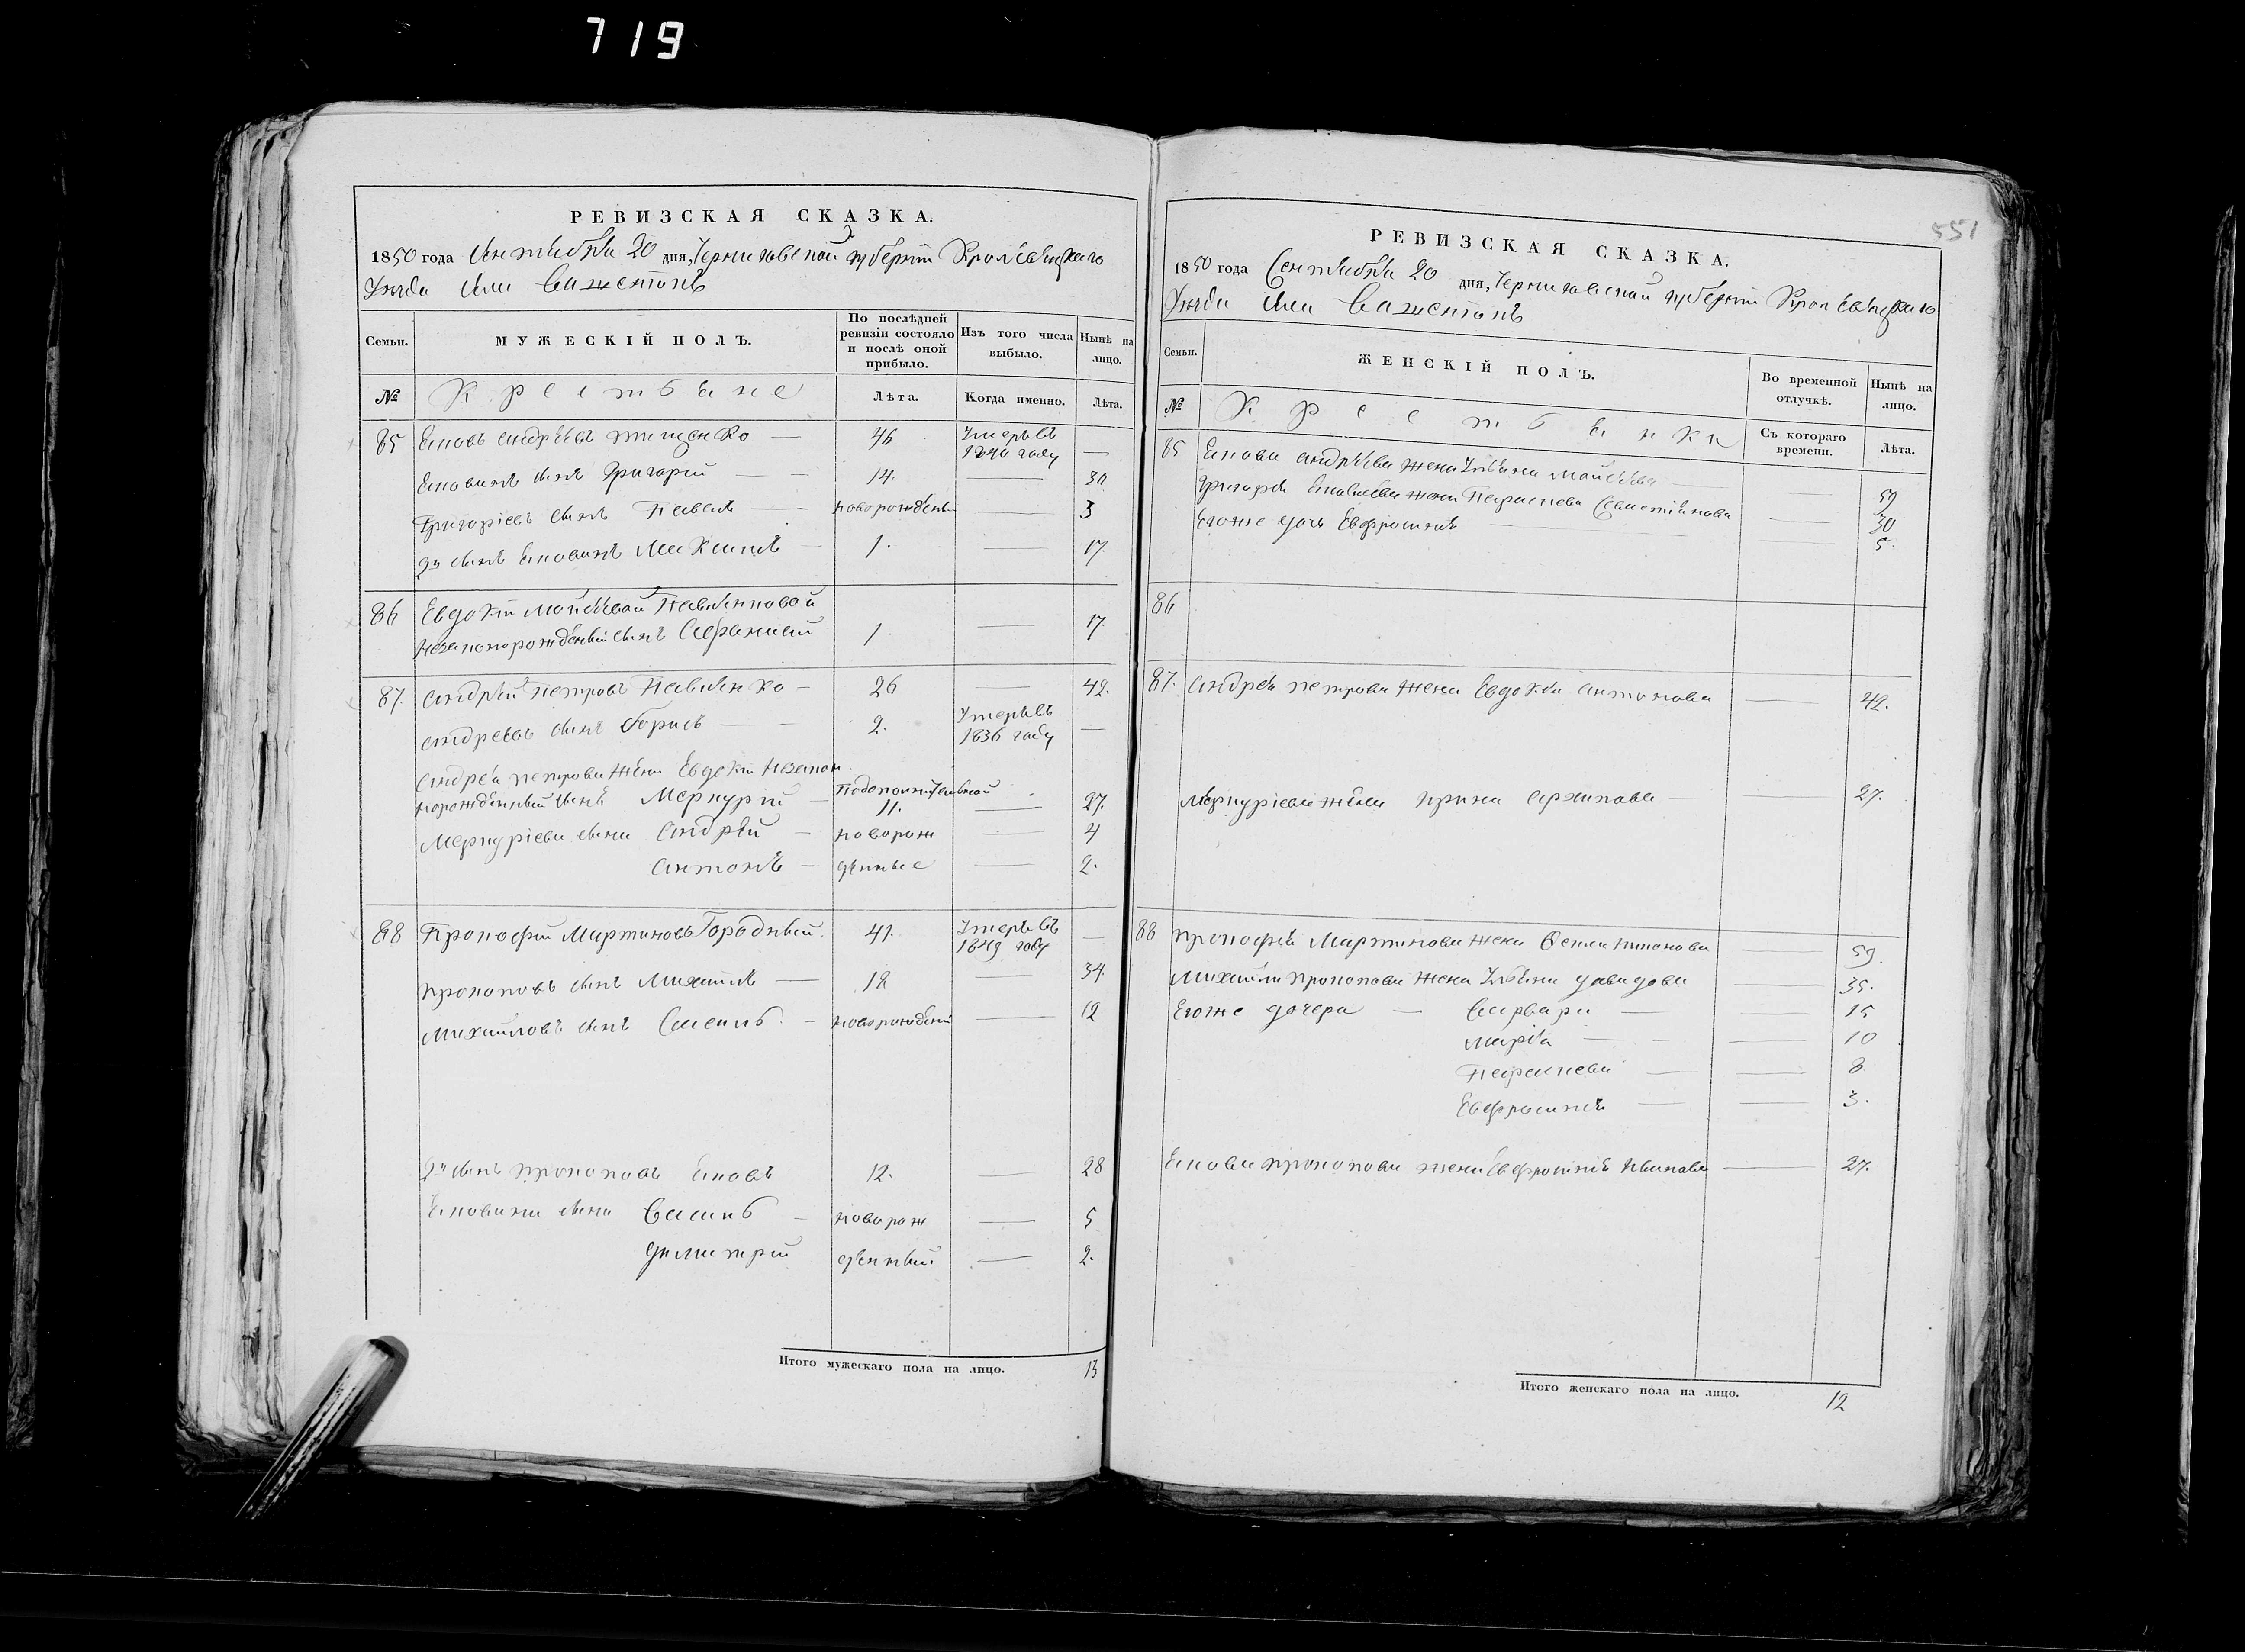 719
РЕВИЗСКАЯ СКАЗКА.
1850 года Сентября 20 дня, Черниговской губерніи Кролевецкаго
Уѣзда Села
Семьи.
МУЖЕСКІЙ ПОЛЪ.
По послѣдней ревизіи состояло и послѣ оной прибыло.
Изъ того числа выбыло.
Нынѣ на лицо.
№
Крестьяне
Лѣта.
Когда именно.
Лѣта.
85 Яковъ Андреевъ Тищенко — 46 Умеръ въ 1840 году —
Яковинъ сынъ Григорій — 14. — 30
Григоріевъ сынъ Павелъ — новорожденъ — 3
2й сынъ Яковинъ Максимъ — 1. — 17.
86 Евдокіи Мойсеевой Павленковой
незаконорожденый сынъ 1. — 17.
87. Андрей Петровъ Павленко — 26 — 42.
Андреевъ сынъ Борисъ — 2. Умеръ въ 1836 году —
Андрея Петрова жены Евдокіи незакон
норожденный сынъ Меркурій — 11. — 27.
Меркуріевы сыны Андрей — новорож — 4
Антонъ — денные — 2.
88 Прокофій Мартиновъ Городный. 41. Умеръ въ 1849 году —
Прокоповъ сынъ Михаилъ — 18 — 34.
Михайловъ сынъ — новорожденый — 12
2й сынъ Прокоповъ Яковъ 12. — 28
Яковины сыны — новорож — 5
Димитрій денный. — 2.
Итого мужескаго пола на лицо. 13
551
РЕВИЗСКАЯ СКАЗКА.
1850 года Сентября 20 дня, Черниговской губерніи Кролевецкаго
Уѣзда Села
Семьи.
ЖЕНСКІЙ ПОЛЪ.
Во временной отлучкѣ.
Нынѣ на лицо.
№
Крестьянки
Съ котораго времени.
Лѣта.
85 Якова Андреева жена Ульяна Мойсеева — 59
Григорія Яковлева жена Параскева Севастіянова — 30
Егоже дочь Евфросинія — 5.
86
87. Андрея Петрова жена Евдокія Антонова — 42.
Меркуріева жена Ирина Архипова — 27.
88 Прокофія Мартинова жена — 59.
Михайла Прокопова жена Ульяна Давидова — 35.
Егоже дочери — Варвара — 15
Марія — 10
Параскева — 8.
Евфросинія — 3.
Якова Прокопова жена Евфросинія — 27.
Итого женскаго пола на лицо. 12